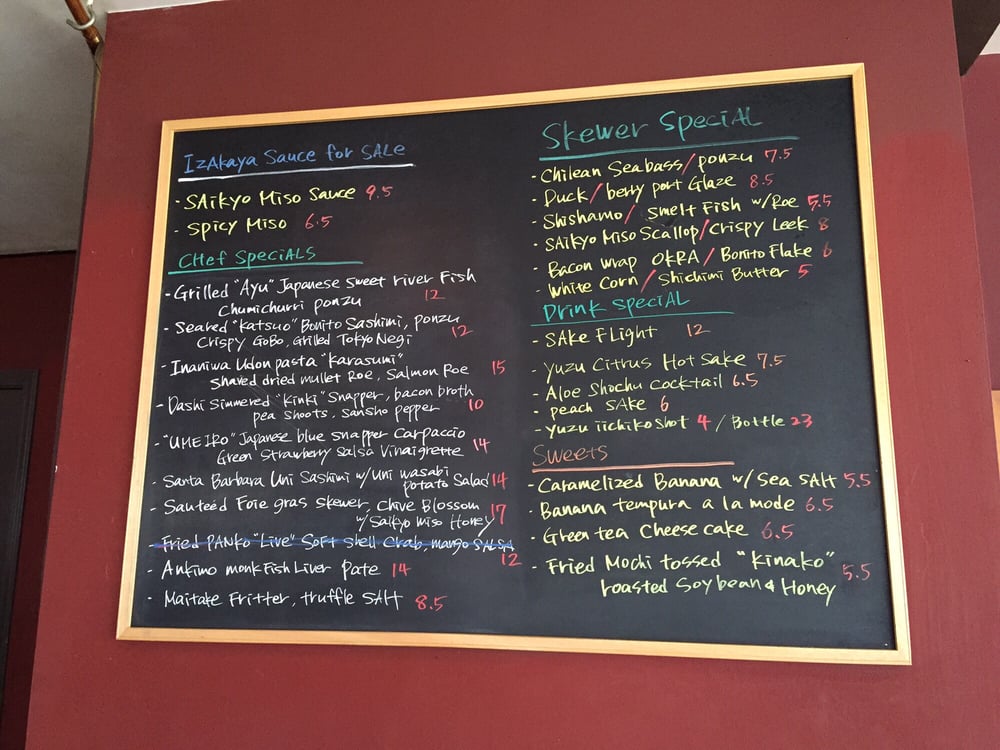 IzAkaya Sauce for SALe
- SAikyo Miso Sauce 9.5
- Spicy Miso 6.5
CHef SpeciALS
- Grilled "Ayu" Japanese sweet river Fish
Chumichurri ponzu 12
- Seared "katsuo" Bonito Sashimi, ponzu
Crispy GoBo, Grilled Tokyo Negi 12
- Inaniwa Udon pasta "Karasumi"
Shaved dried mullet Roe, Salmon Roe 15
- Dashi Simmered "Kinki" Snapper, bacon broth
pea shoots, sansho pepper 10
- "UME IRO" Japanese blue snapper Carpaccio
Green Strawberry Salsa Vinaigrette 14
- Santa Barbara Uni Sashimi w/Uni wasabi
potato Salad 14
- Sauteed Foie gras skewer, chive Blossom
w/Saikyo miso Honey 17
- Fried PANko "Live" Soft Shell Crab, mango SALSA
12
- Ankimo monkFish Liver pate 14
- Maitake Fritter, truffle SAlt 8.5
Skewer SpeciAL
- Chilean Seabass/ponzu 7.5
- Duck/berry port Glaze 8.5
- Shishamo/ Smelt Fish w/Roe 5.5
- SAikyo Miso Scallop/Crispy Leek 8
- Bacon wrap OKRA/Bonito Flake 6
- White Corn/Shichimi Butter 5
Drink SpeciAL
- SAke FLight 12
- yuzu Citrus Hot Sake 7.5
- Aloe Shochu cocktail 6.5
- peach SAke 6
- yuzu iichiko shot 4 / Bottle 23
Sweets
- Caramelized Banana w/Sea SAlt 5.5
- Banana tempura a la mode 6.5
- Green tea Cheese cake 6.5
- Fried Mochi tossed "kinako"
roasted Soybean & Honey 5.5